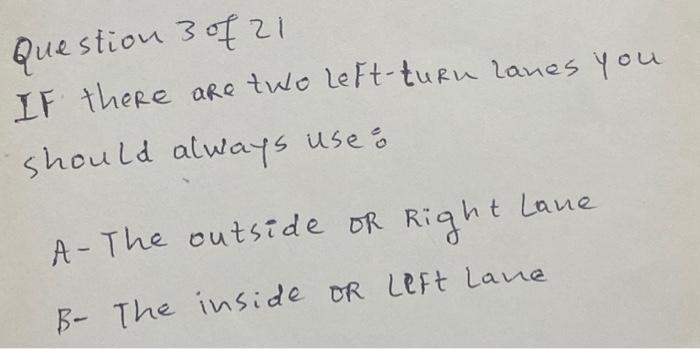 Question 3 of 21
IF there are two left-turn lanes you
should always use:
A- The outside OR Right Lane
B- The inside OR Left Lane